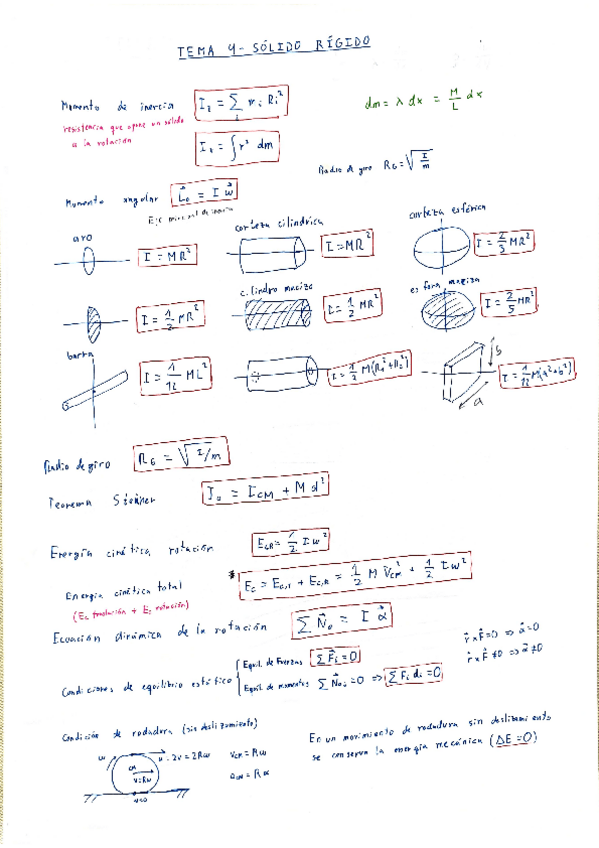 TEMA 4 - SÓLIDO RÍGIDO
Momento de inercia I₂ = ∑ mᵢ Rᵢ²
dm = λ dx = M/L dx
resistencia que opone un sólido
a la rotación
I₀ = ∫ r² dm
Radio de giro R_G = √(I/m)
Momento angular L⃗₀ = I w⃗
Eje principal de inercia
aro I = MR²
corteza cilíndrica I = MR²
corteza esférica I = 2/3 MR²
I = 1/2 MR²
cilindro macizo I = 1/2 MR²
esfera maciza I = 2/5 MR²
barra I = 1/12 ML²
I = 1/2 M(R₁²+R₂²)
I = 1/12 M(a²+b²)
b
a
Radio de giro R_G = √(I/m)
Teorema Steiner I₀ = I_CM + M d²
Energía cinética rotación E_CR = 1/2 I w²
Energía cinética total * E_C = E_C,T + E_C,R = 1/2 M V_CM² + 1/2 I w²
(E_C traslación + E_C rotación)
Ecuación dinámica de la rotación ∑ N⃗₀ = I α⃗
r⃗ x F⃗ = 0 ⇒ α⃗ = 0
r⃗ x F⃗ ≠ 0 ⇒ α⃗ ≠ 0
Condiciones de equilibrio estático
Equil. de Fuerzas ∑ F⃗ᵢ = 0
Equil. de momentos ∑ N⃗₀ᵢ = 0 ⇒ ∑ Fᵢ dᵢ = 0
Condición de rodadura (sin deslizamiento)
w
v = 2v = 2Rw
CM
V = Rw
v = 0
V_CM = Rw
a_CM = Rα
En un movimiento de rodadura sin deslizamiento
se conserva la energía mecánica (ΔE = 0)